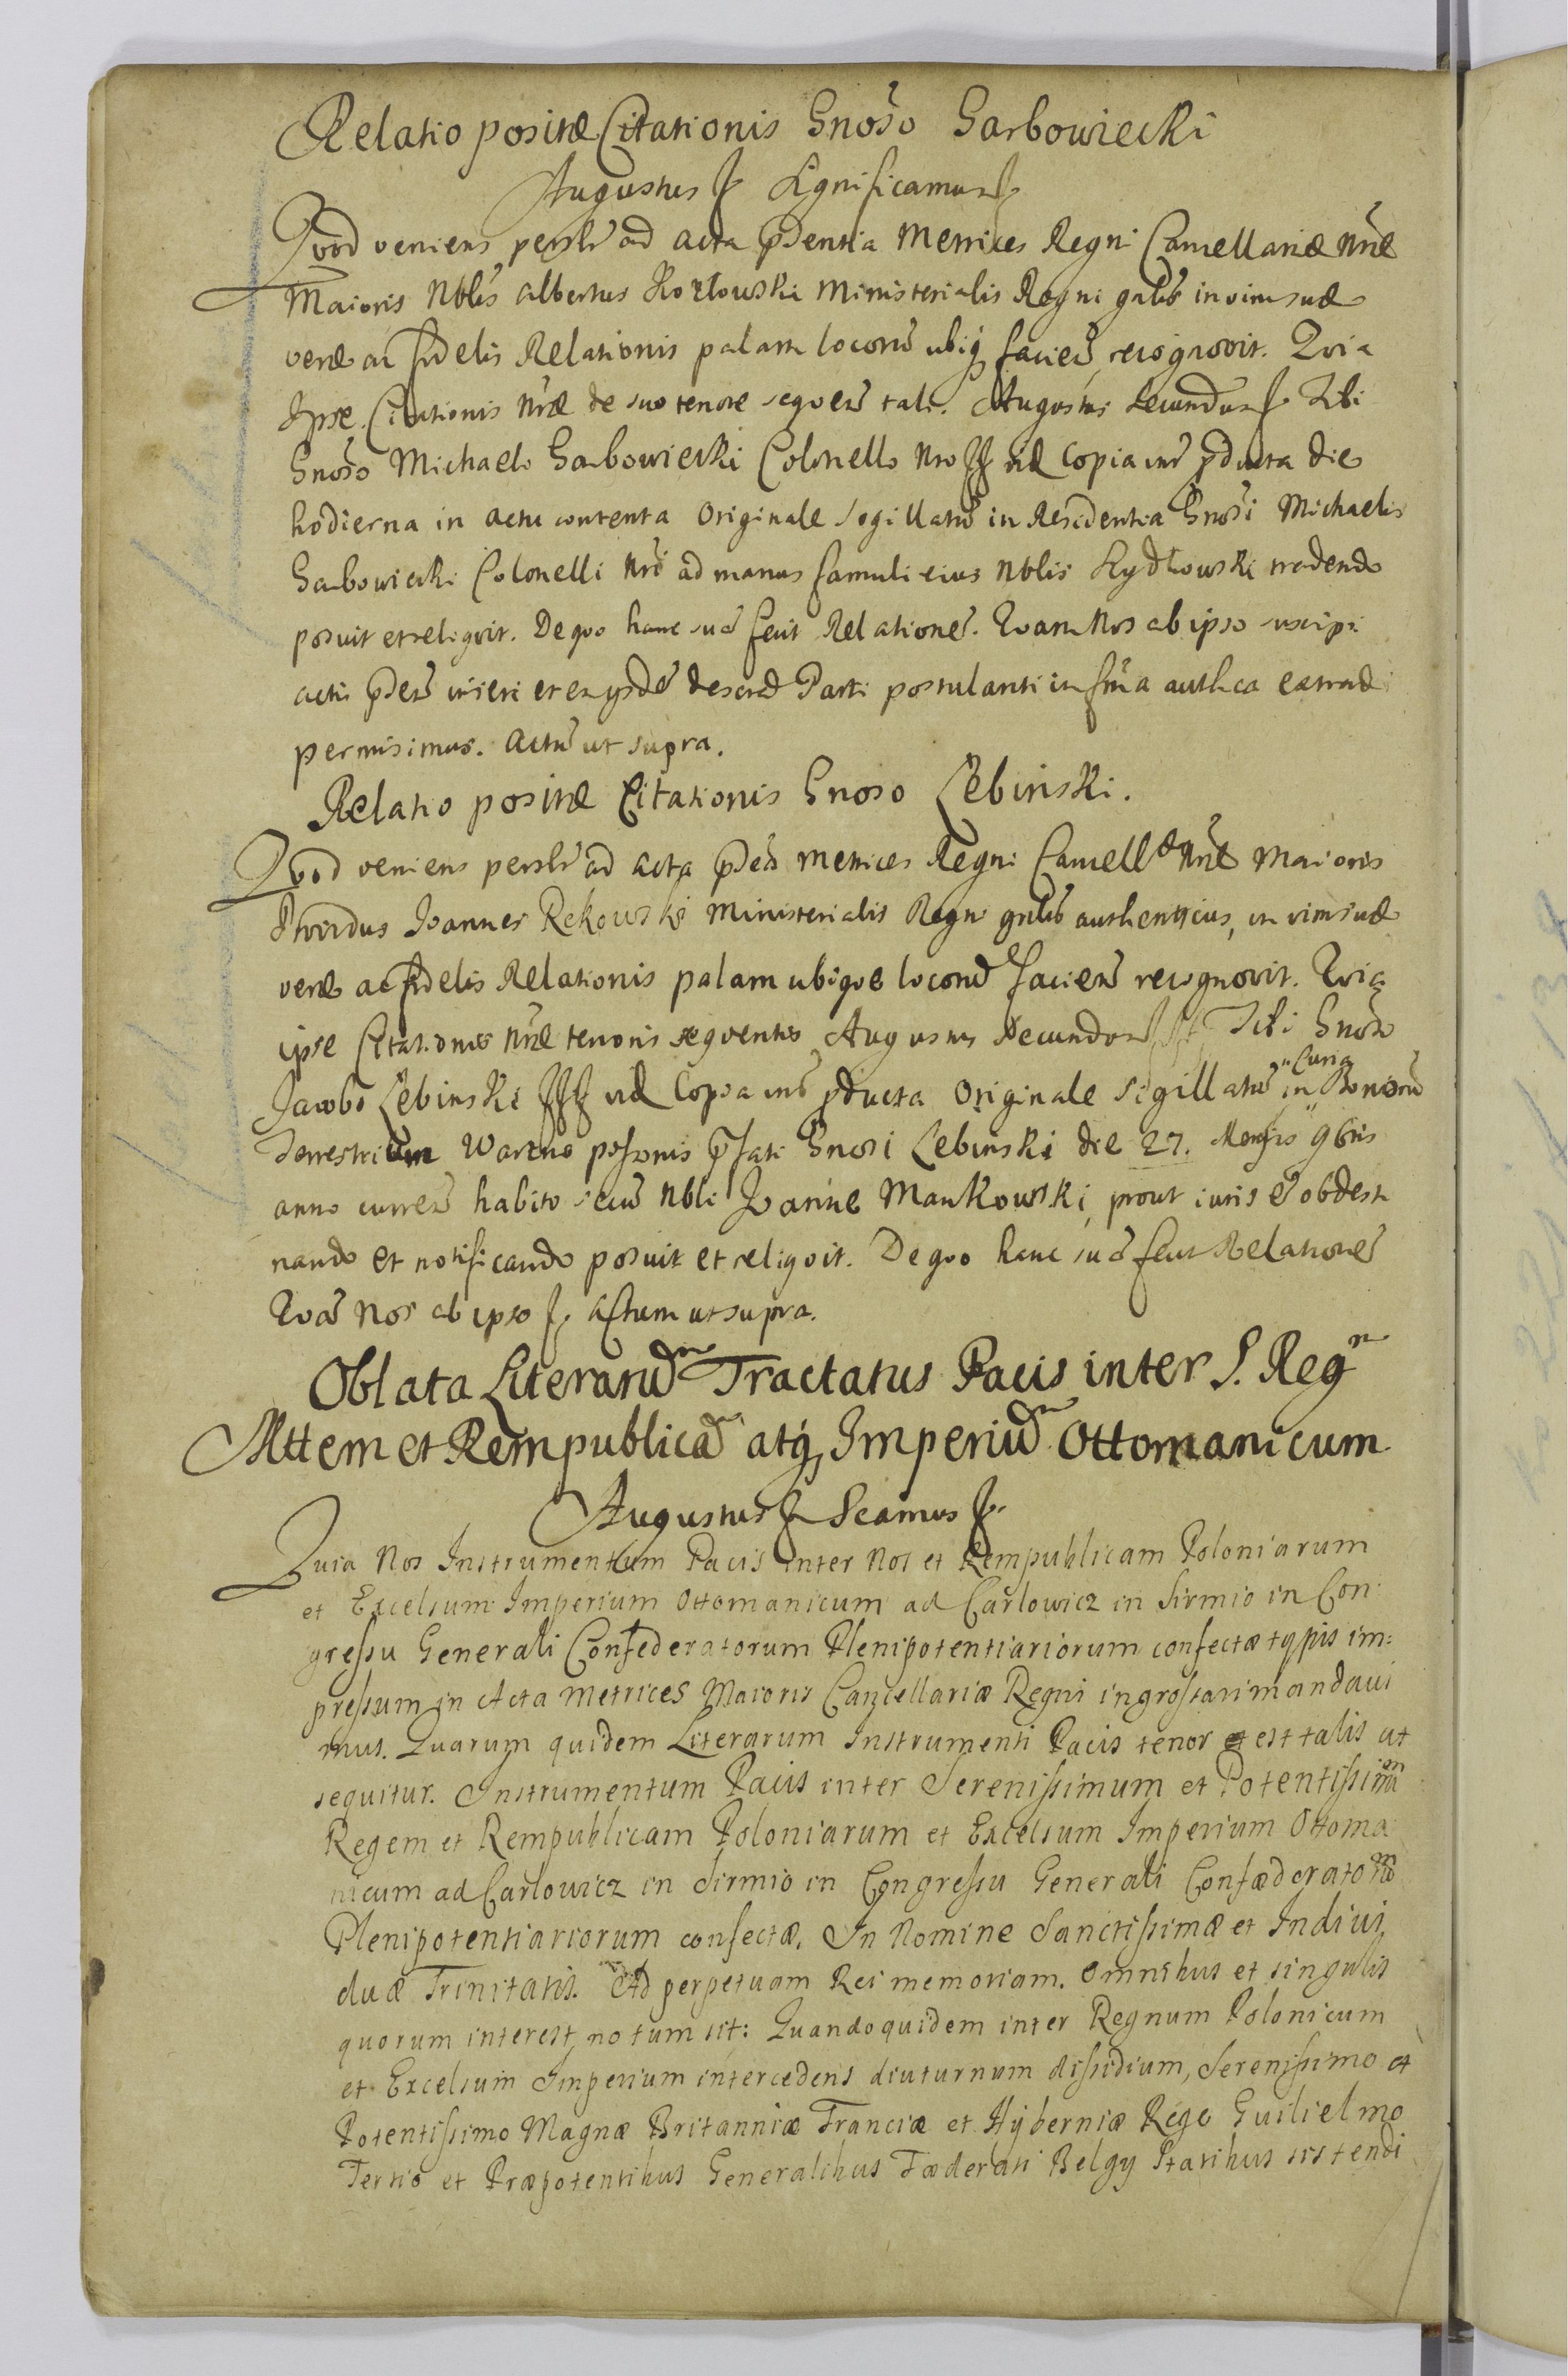 Relatio positæ Citationis Gnoso Garbowiecki
Augustus Significamus
Quod veniens persblr ad acta prsentia Metrices Regni Cancellariæ Nræ
Maioris Nblis Albertus Kozlowski Ministerialis Regni gnlis in vim suæ
veræ ac fidelis Relationis palam locorũ ubiq facien recognovit. Quia
Ipse Citationis Nræ de suo tenore sequen tali. Augustus Secundus Tibi
Gnoso Michaeli Garbowiecki Colonello Nro copia prducta die
hodierna in actu contenta Originale Sigillatũ in Residentia Gnosi Michaelis
Garbowiecki Colonelli Nri ad manus famuli eius Nblis tradendo
posuit et reliquit. De quo hanc suã fecit Relationẽ. Quam Nos ab ipso suscipi
actis prsen inseri et ex ysdẽ Parti postulanti in fma authca extradi
permisimus. Actũ ut supra.
Relatio positæ Citationis Gnoso Lebinski.
Quod veniens persblr ad acta prsen Metrices Regni Cancellæ Nræ Maioris
Prvidus Joannes Rekowski Ministerialis Regni gnlis authenticus, in vim suæ
veræ ac fidelis Relationis palam ubique locorũ facien recognovit. Quia
ipse Citationis Nræ tenoris sequentis Augustus Secundus Tibi Gnoso
Jacobo Lebinski copia prducta Originale Sigillatũ in "Curia" Bonorũ
Terrestrium possonis prfati Gnosi Lebinski die 27. Mensis 9bris
anno curren habito secũ Nbli Joanne Mankowski, prout iuris ẽ obdesti
nando et notificando posuit et reliquit. De quo hanc suã fecit Relationẽ
Quã Nos ab ipso actum ut supra.
Oblata Literarũm Tractatus Pacis inter S. Regm
Mttem et Rempublicãm atq Imperiũm Ottomanicum
Augustus Scamus
Quia Nos Instrumentum Pacis inter Nos et Rempublicam Poloniarum
et Excelsum Imperium Ottomanicum ad Carlowicz in Sirmio in Con:
gressu Generali Confederatorum Plenipotentiariorum confectæ typis im=
pressum in Acta Metrices Maioris Cancellariæ Regni ingrossari mandavi
mus. Quarum quidem Literarum Instrumenti Pacis tenor est talis ut
sequitur. Instrumentum Pacis inter Serenissimum et Potentissimũm
Regem et Rempublicam Poloniarum et Excelsum Imperium Ottoma
nicum ad Carlowicz in Sirmio in Congressu Generali Confæderatorũm
Plenipotentiariorum confectæ. In Nomine Sanctissimæ et Indivi
duæ Trinitatis. Ad perpetuam Rei memoriam. Omnibus et singulis
quorum interest notum sit: Quandoquidem inter Regnum Polonicum
et Excelsum Imperium intercedens diuturnum dissidium, Serenissimo et
Potentissimo Magnæ Britanniæ Franciæ et Hyberniæ Rege Guilielmo
Tertio et Præpotentibus Generalibus Fæderati Belgy Statibus sistendi